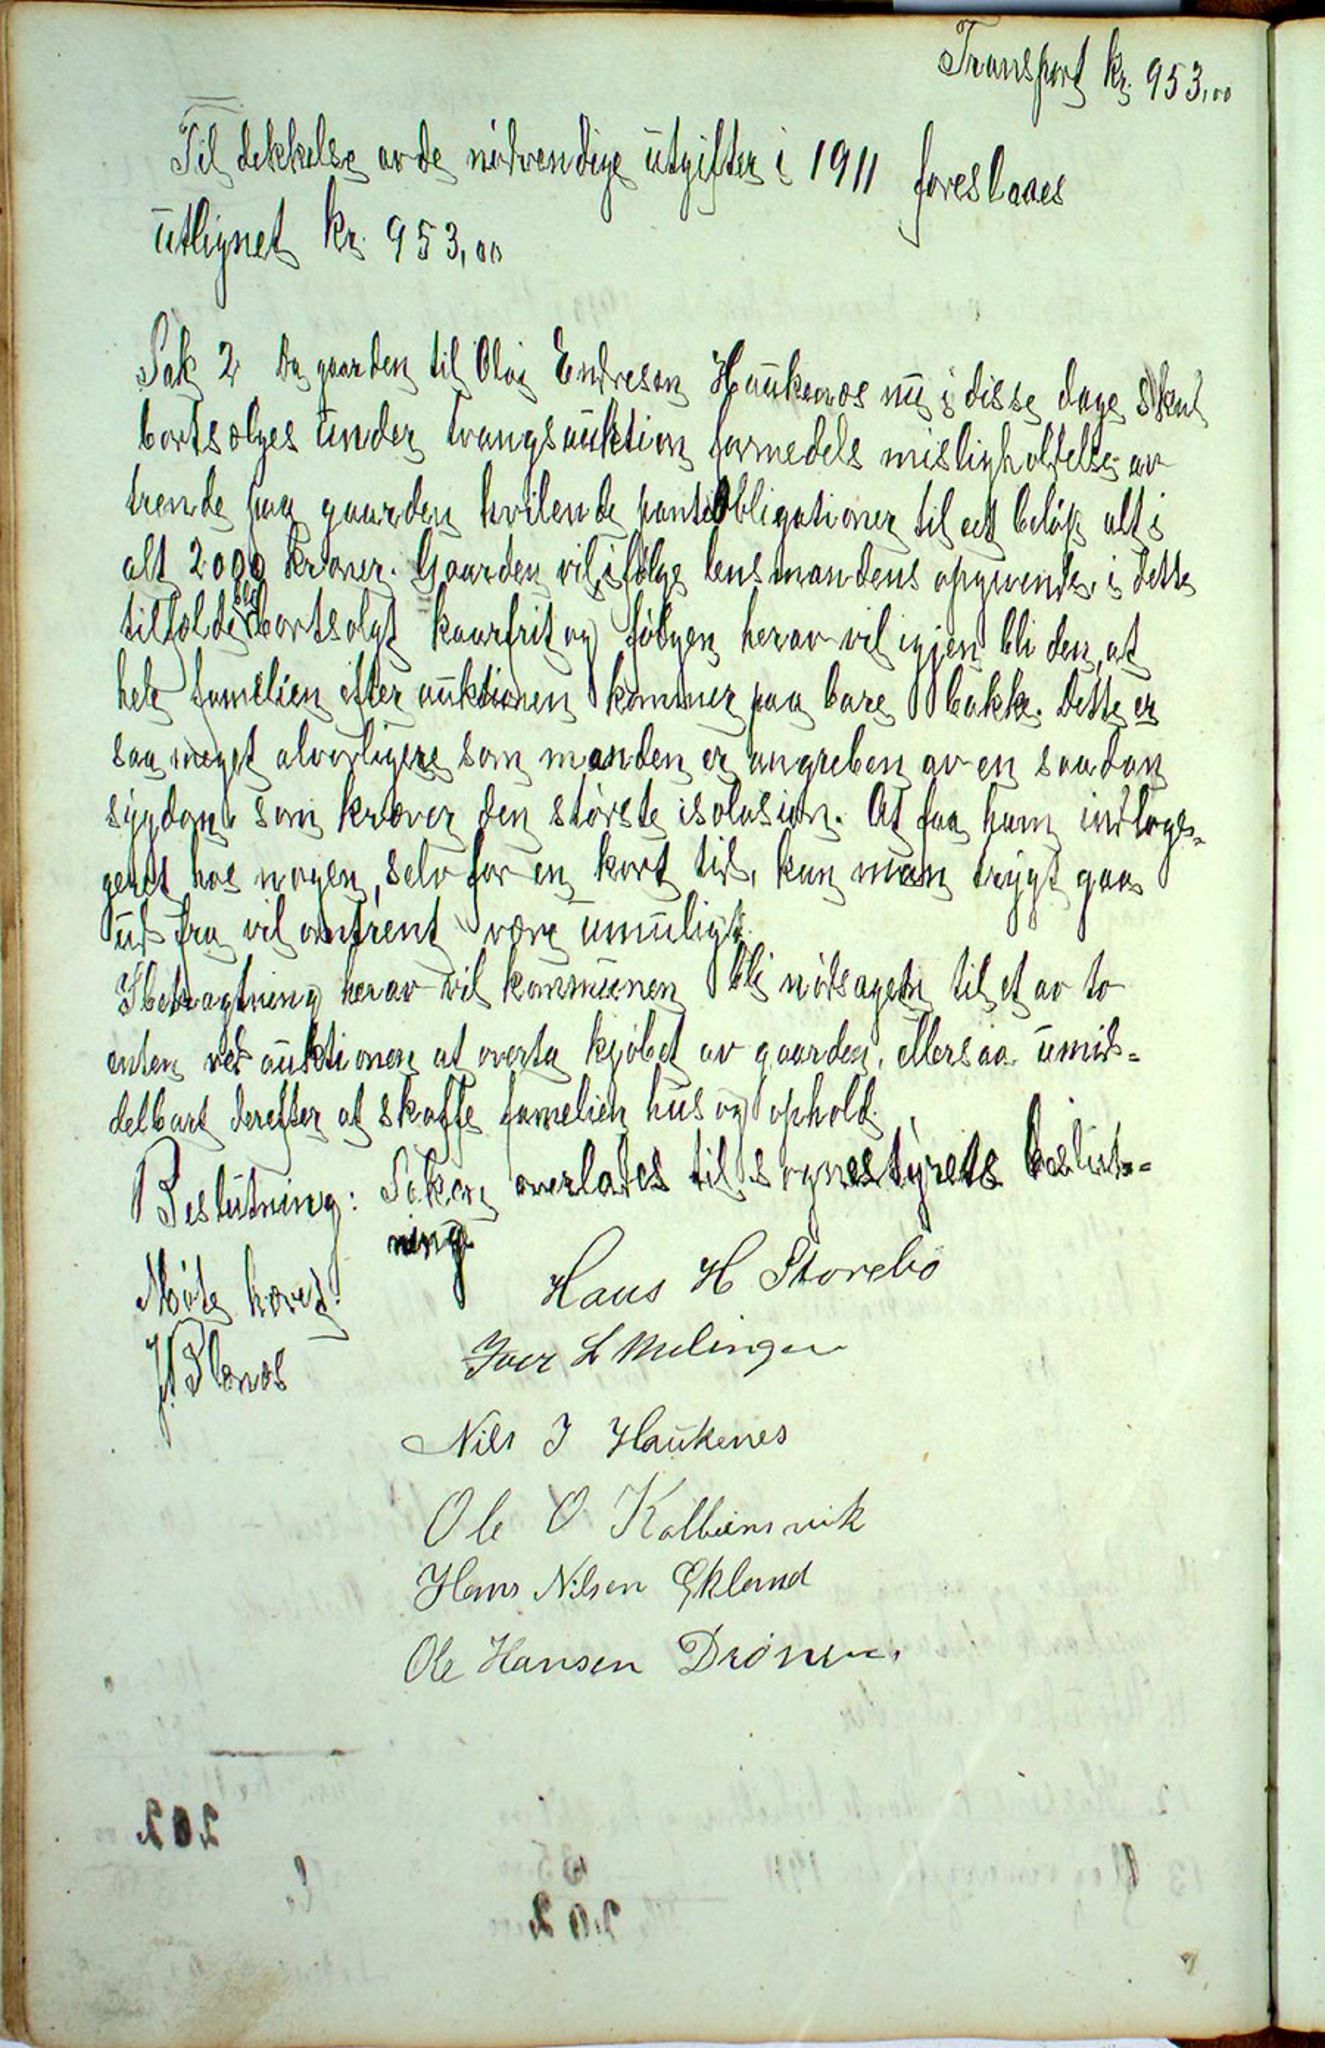 Transport kr. 953,00
Til dekkelse av de nödvendige utgifter i 1911 foreslaaes
utlignet kr. 953,00
Sak 2 Da gaarden til Olai Endresen Haukenæs nu i disse dage skal
bortsælges under tvangsauktion formedels misligholdelse av
trende paa gaarden hvilende panteobligationer til et belöp alt i
alt 2000 kroner. Gaarden vil ifölge lensmandens opgivende i dette
tilfælde bli bortsolgt kaarfrit og fölgen herav vil igjen bli den, at
hele familien efter auktionen kommer paa bare bakke. Dette er
saa meget alvorligere som manden er angreben av en saadan
sygdom som kræver den störste isolasion. At faa ham indloge-
geret hos nogen, selv for en kort tid, kan man trygt gaa
ud fra vil omtrent være umuligt.
I betragtning herav vil kommunen bli nödsaget til et av to
enten ved auktionen at overta kjöbet av gaarden, ellersaa umid-
delbart derefter at skaffe familien hus og ophold.
Beslutning: Saken overlades til sognestyrets beslut-
ning
Möte hævet.
Hans H Storebö
Iver L Melingen
J. Slenæs
Nils J Haukenes
Ole O. Kolbeinsvik
Hans Nilsen Ekland
Ole Hansen Drönen.